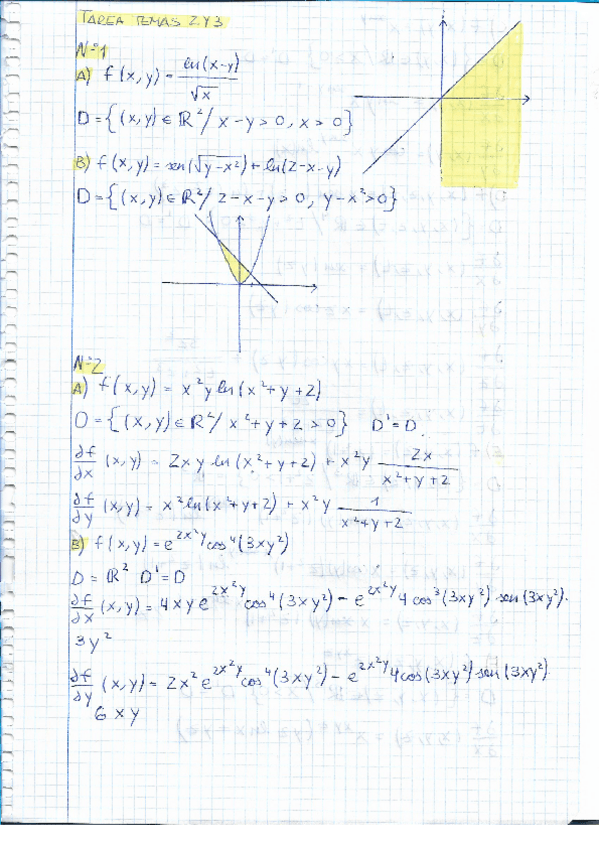 TAREA TEMAS 2 Y 3
Nº1
A) f(x,y) = ln(x-y)/√x
D = {(x,y) ∈ R²/ x-y>0, x>0}
B) f(x,y) = sen(√(y-x²)) + ln(2-x-y)
D = {(x,y) ∈ R²/ 2-x-y>0, y-x²>0}
Nº2
A) f(x,y) = x²y ln(x²+y+2)
D = {(x,y) ∈ R²/ x²+y+2>0} D'=D.
∂f/∂x (x,y) = 2xy ln(x²+y+2) + x²y 2x/(x²+y+2)
∂f/∂y (x,y) = x² ln(x²+y+2) + x²y 1/(x²+y+2)
B) f(x,y) = e^(2x²y) cos⁴(3xy²)
D = R² D'=D
∂f/∂x (x,y) = 4xy e^(2x²y) cos⁴(3xy²) - e^(2x²y) 4cos³(3xy²) sen(3xy²)·
3y²
∂f/∂y (x,y) = 2x² e^(2x²y) cos⁴(3xy²) - e^(2x²y) 4cos(3xy²) sen(3xy²)·
6xy